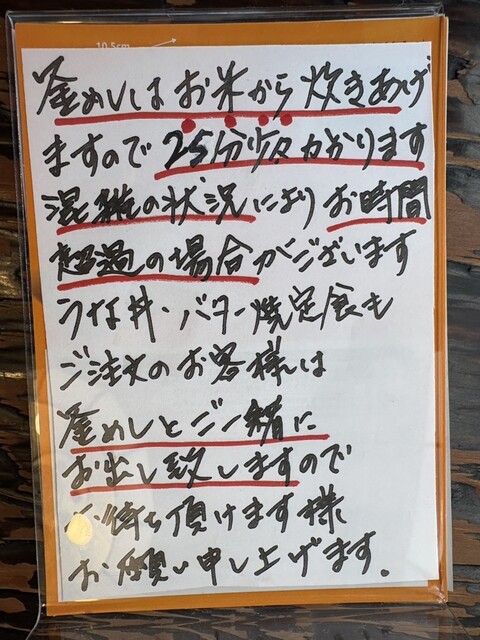 10.5cm
釜めしはお米から炊きあげ
ますので25分少々かかります
混雑の状況によりお時間
超過の場合がございます
うな丼・バター焼定食も
ご注文のお客様は
釜めしとご一緒に
お出し致しますので
お待ち頂けます様
お願い申し上げます。